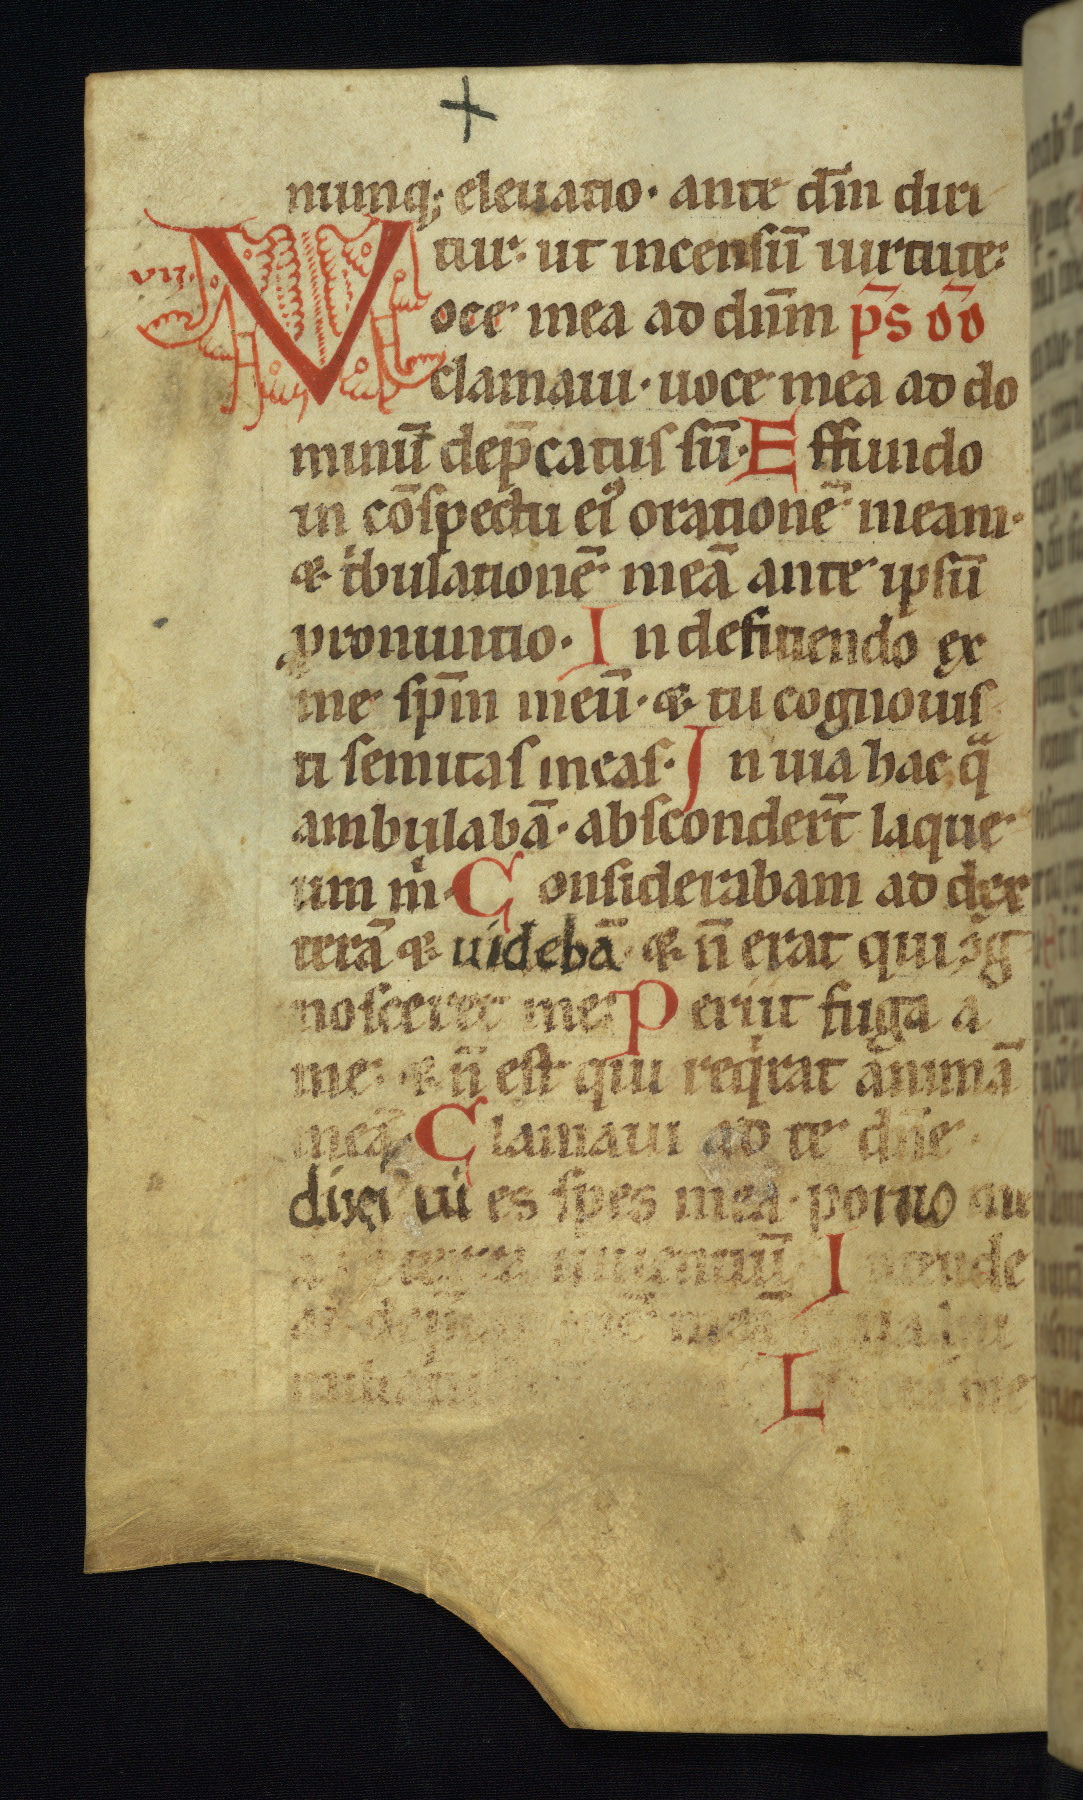 nūmq; eleuatio· ante dm̄ diri
tur: ut incensū uirtute:
Voce mea ad dn̄m p̄s d̄d
clamaui· uoce mea ad do
minū dep̄catus sū· Effundo
in cōspectu ei' orationē meam·
& t'bulationē meā ante ipsū
pronuntio· In defitiendo ex
me sp̄m meū· & tu cognouis
ti semitas meas· In uia hac q̄
ambulabā· absconder̄t laque
um m· Considerabam ad dex
terā & uidebā· & n̄ erat qui ɔ̄g
nosceret me: Periit fuga a
me: & n̄ est qui reqirat animā
meā· Clamaui ad te dn̄e·
dixi tu es spes mea· portio
uiuentiū Intende
meā
L me